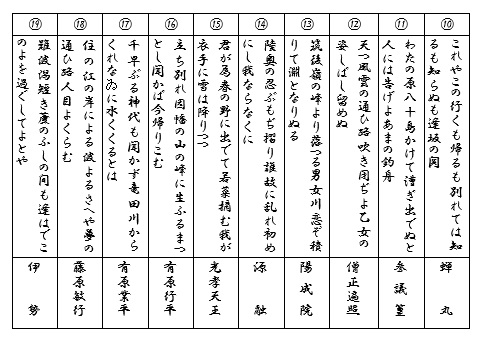 ⑩
これやこの行くも帰るも別れては知
るも知らぬも逢坂の関
蝉丸
⑪
わたの原八十島かけて漕ぎ出でぬと
人には告げよあまの釣舟
参議篁
⑫
天つ風雲の通ひ路吹き閉ぢよ乙女の
姿しばし留めぬ
僧正遍照
⑬
筑波嶺の峰より落つる男女川恋ぞ積
りて淵となりぬる
陽成院
⑭
陸奥の忍ぶもぢ摺り誰故に乱れ初め
にし我ならなくに
源融
⑮
君が為春の野に出でて若菜摘む我が
衣手に雪は降りつつ
光孝天王
⑯
立ち別れ因幡の山の峰に生ふるまつ
とし聞かば今帰りこむ
有原行平
⑰
千早ぶる神代も聞かず竜田川から
くれなゐに水くくるとは
有原業平
⑱
住の江の岸による波よるさへや夢の
通ひ路人目よくらむ
藤原敏行
⑲
難波潟短き蘆のふしの間も逢はでこ
のよを過ぐしてよとや
伊勢